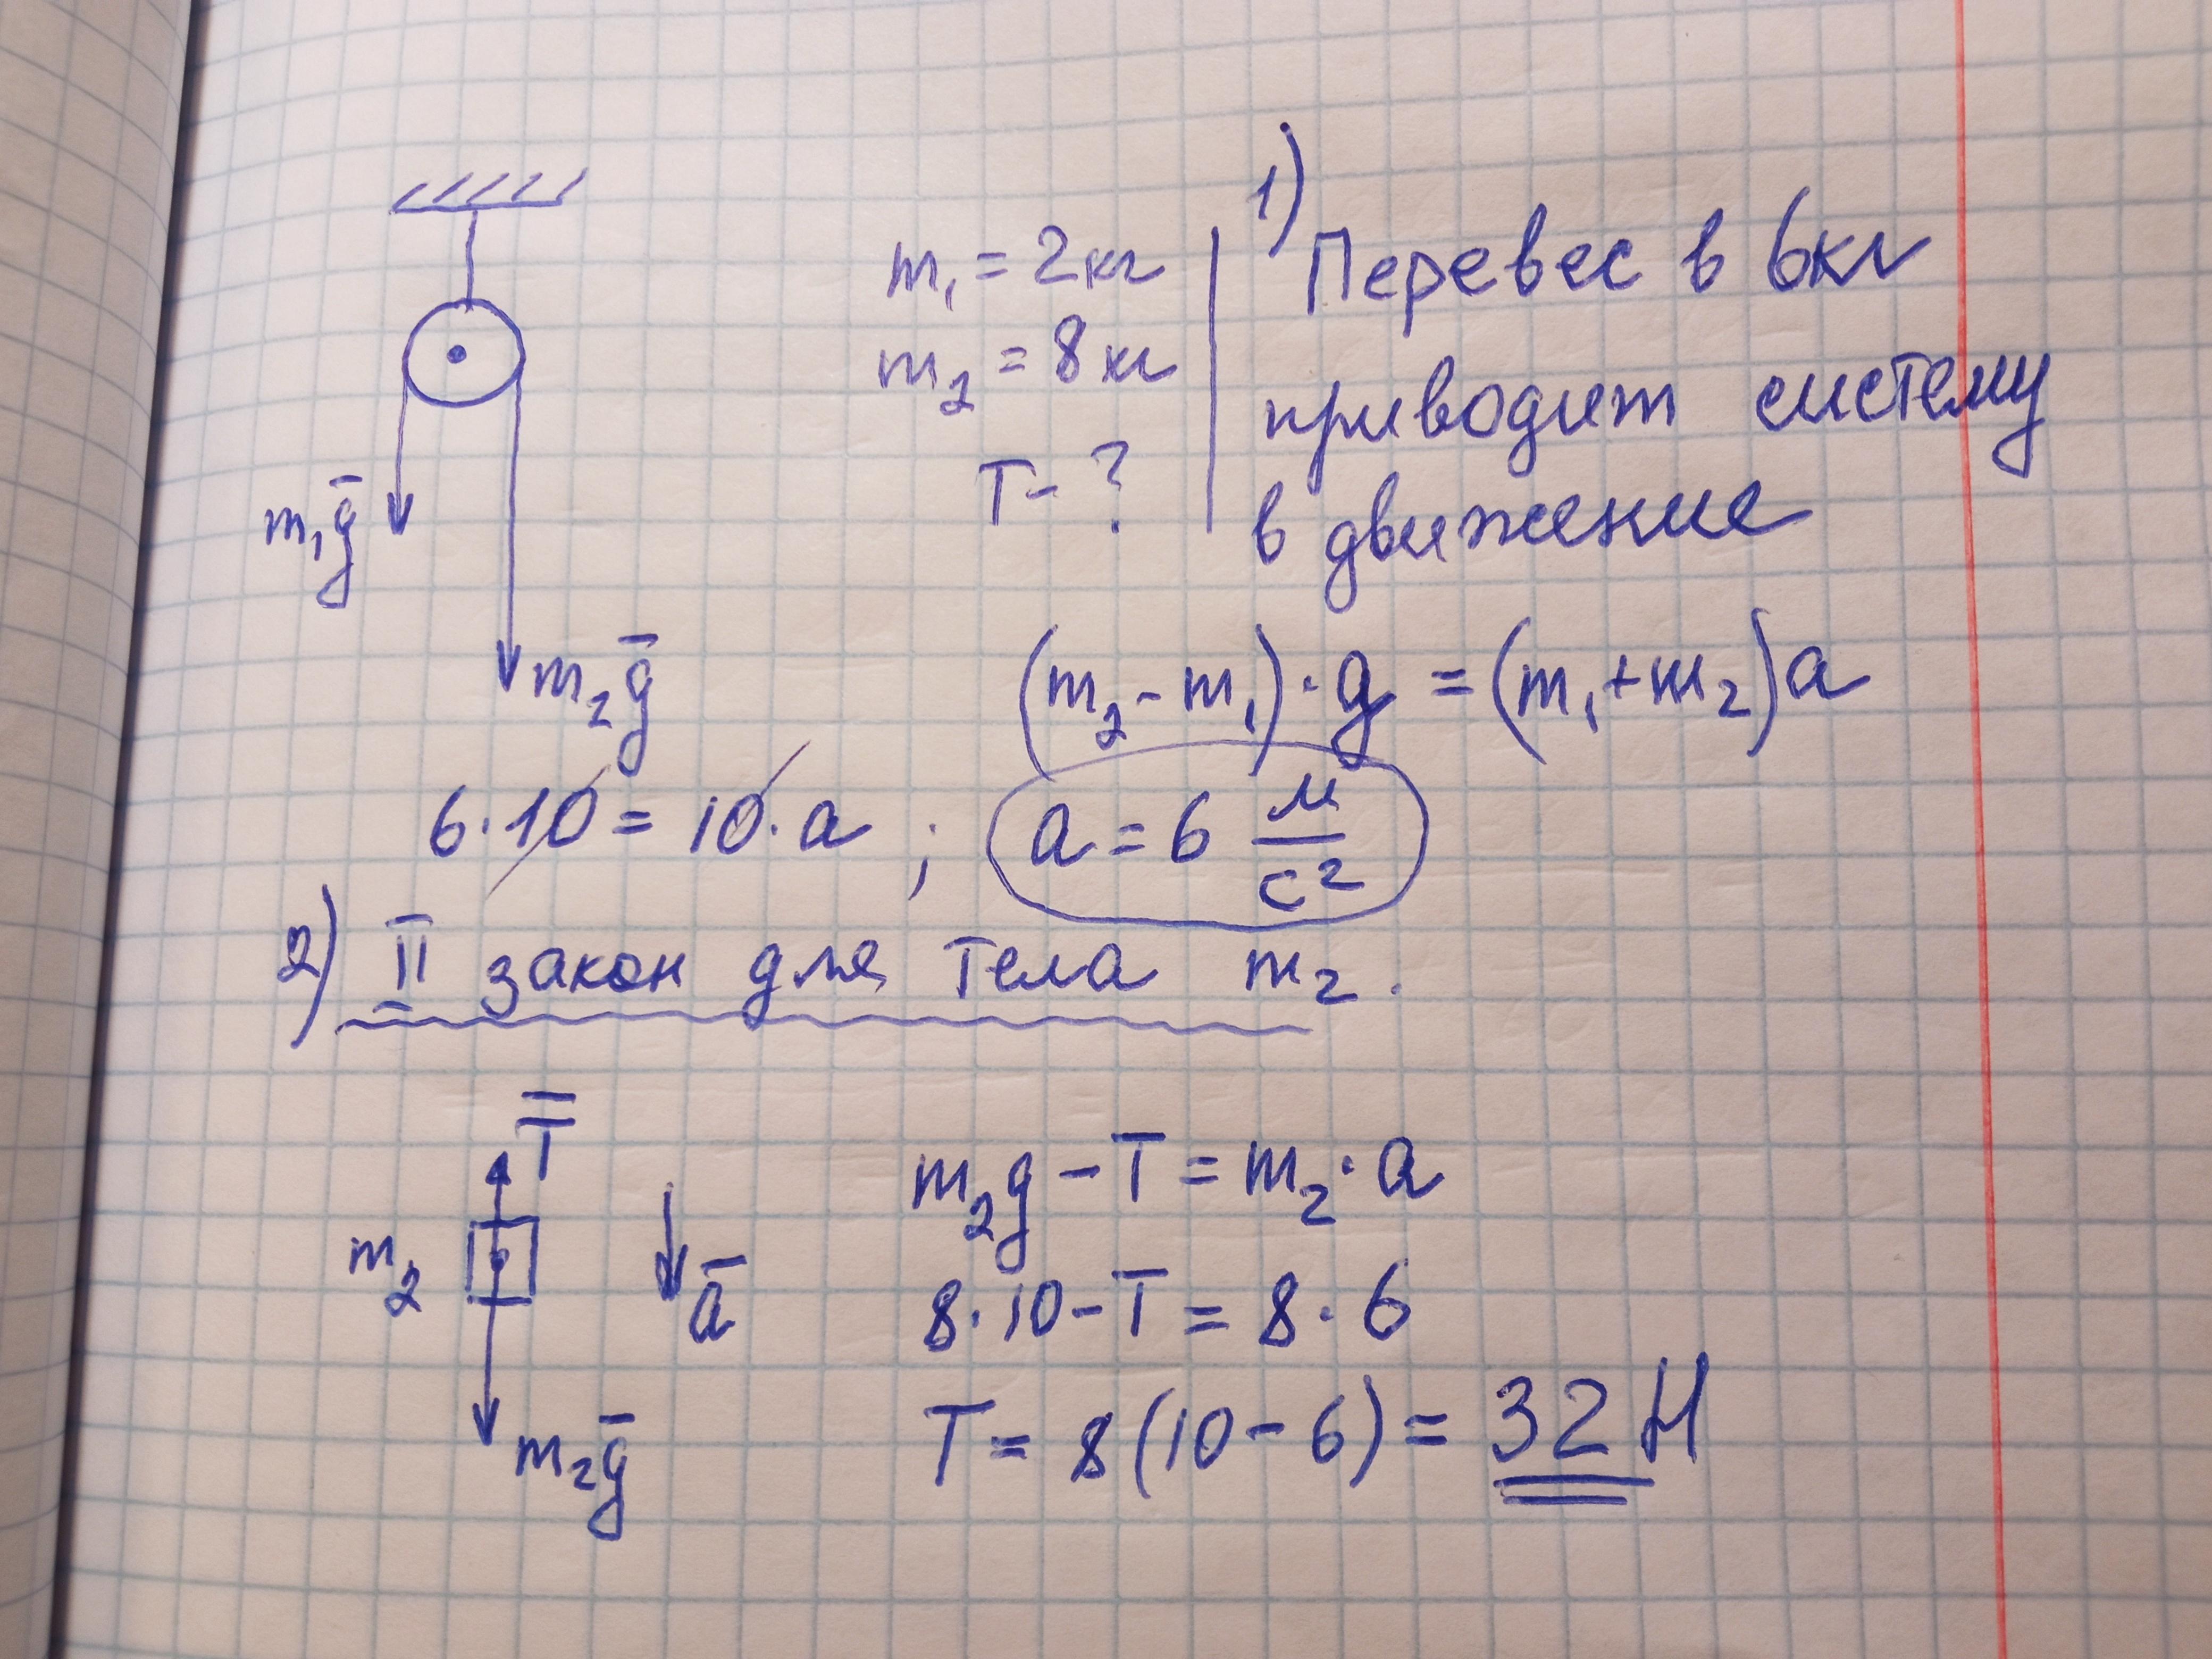 m₁ = 2кг
m₂ = 8кг
T - ?
1) Перевес в 6кг
приводит систему
в движение
m₁g̅
m₂g̅
(m₂ - m₁) · g = (m₁ + m₂)a
6 · 10 = 10 · a ; a = 6 м/с²
2) II закон для тела m₂.
T̅
m₂
a̅
m₂g̅
m₂g - T = m₂ · a
8 · 10 - T = 8 · 6
T = 8(10 - 6) = 32 Н